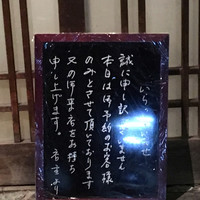 いらっしゃいませ
誠に申し訳ございません
本日は御予約のお客様
のみとさせて頂いております
又の御来店をお待ち
申し上げます。